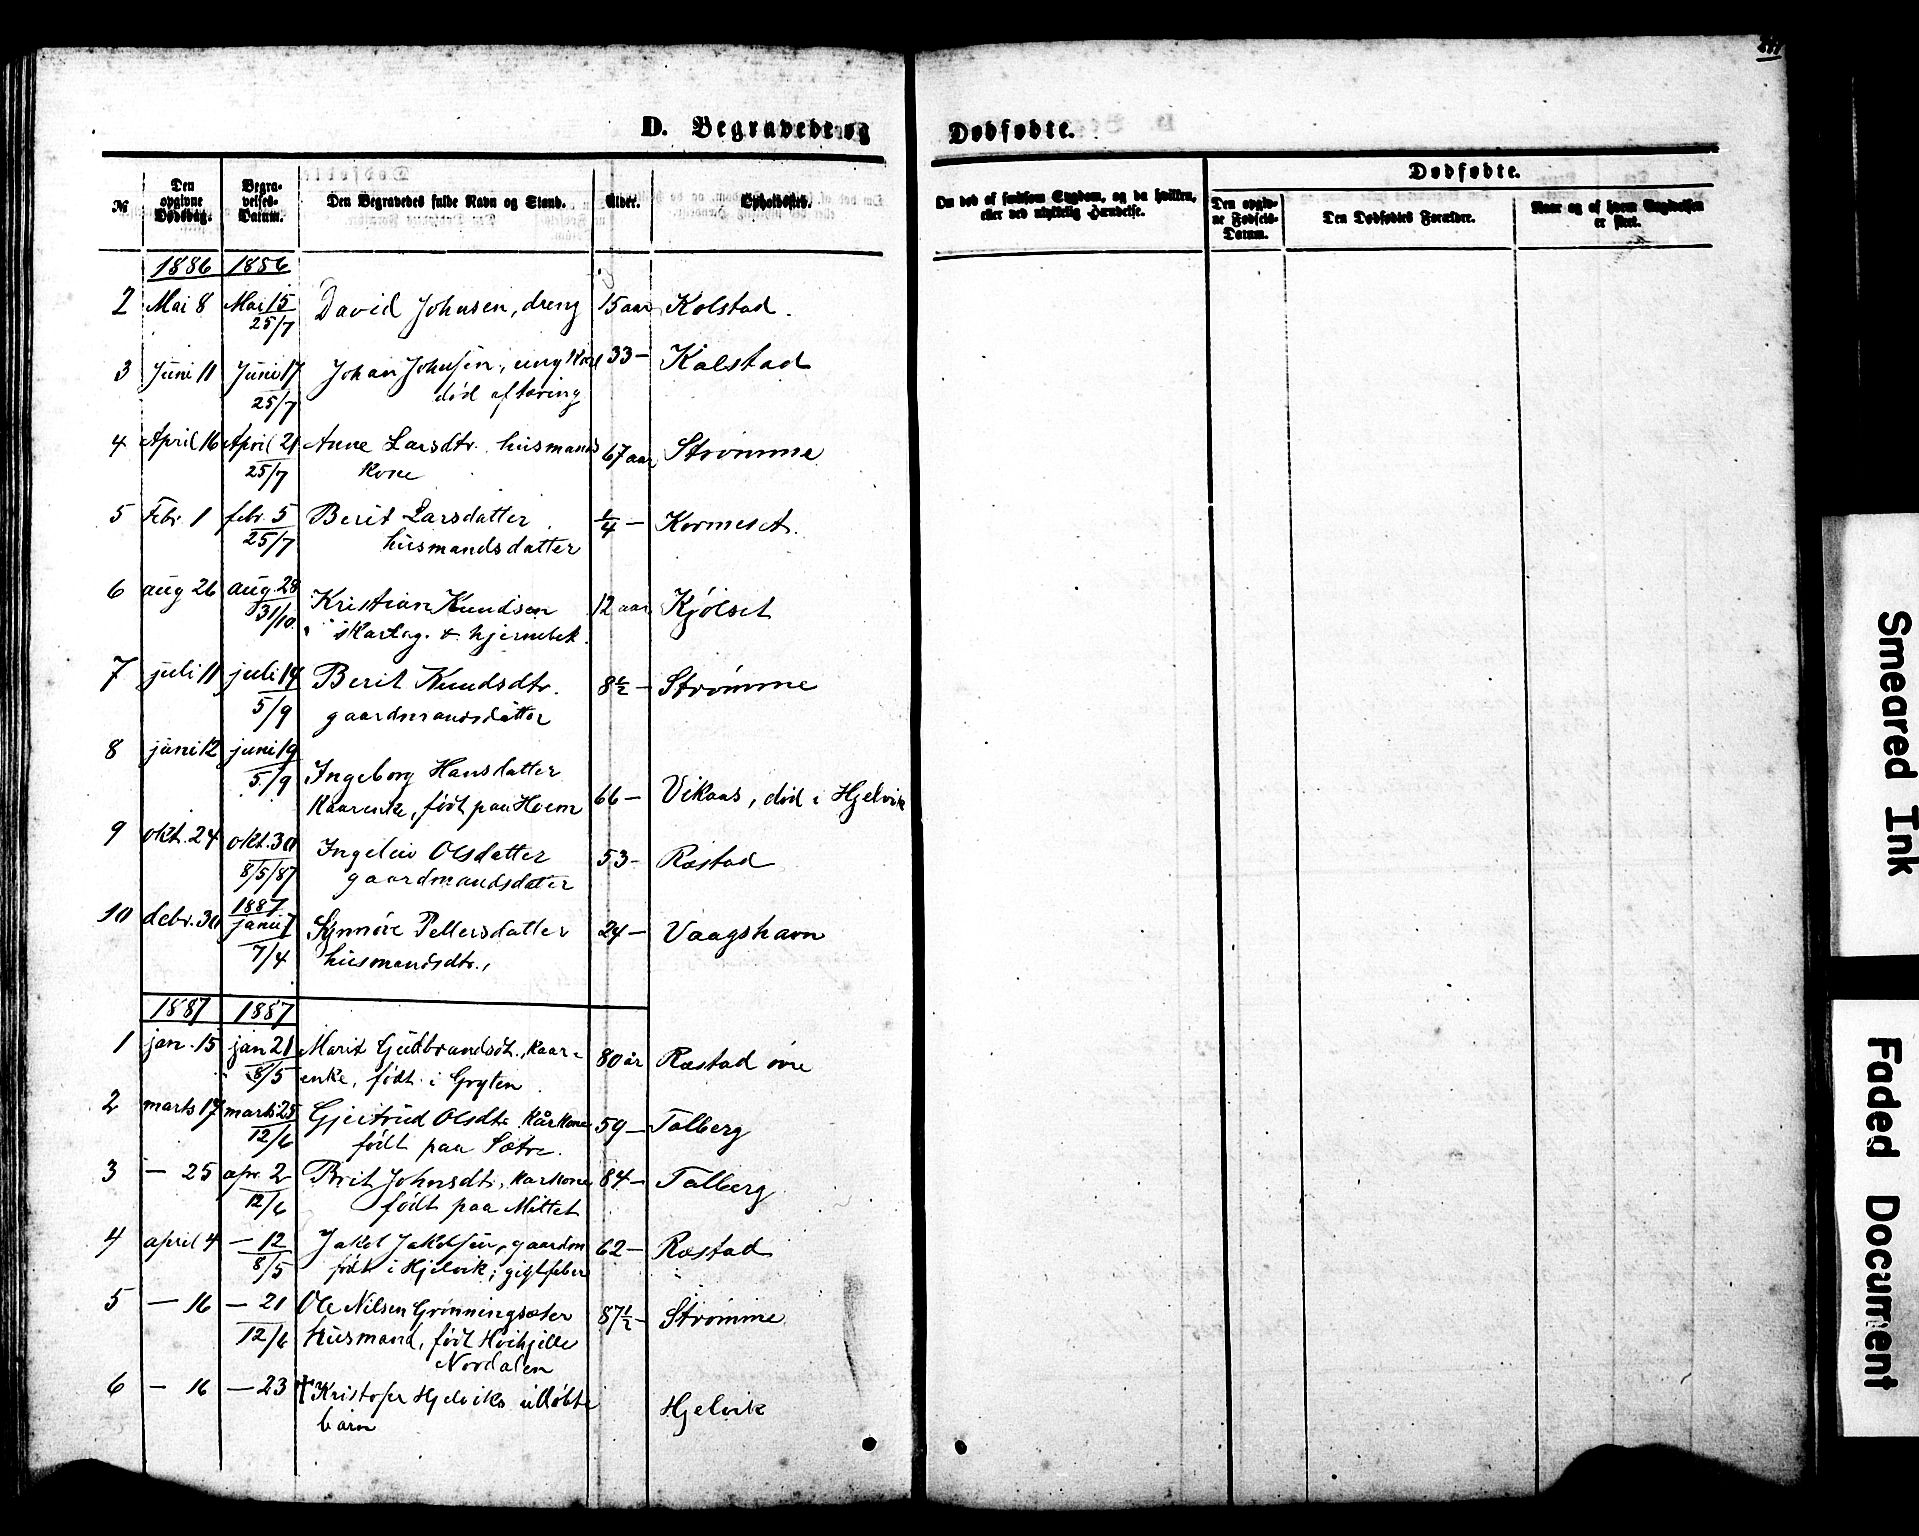 D. Begravede og Dødfødte.
№ Den opgivne Dødsdag. Begravelses-Datum. Den Begravedes fulde Navn og Stand. Alder. Opholdssted. Om død af smitsom Sygdom, og da hvilken, eller ved ulykkelig Hændelse. Dødfødte.
Den opgivne Fødsels-Datum. Den Dødfødtes Forældre. Naar og af hvem Anmeldelsen er skeet.
1886 1886
2 Mai 8 Mai 15 David Johnsen, dreng 15 aar Kolstad.
25/7
3 Juni 11 Juni 17 Johan Johnsen, ung Karl 33 — Kalstad
25/7 død af tæring
4 April 16 April 21 Anne Larsdtr. husmands 67 aar Strømme
25/7 kone
5 Febr. 1 febr. 5 Berit Larsdatter 1/4 — Kormeset.
25/7 husmandsdatter
6 aug 26 aug. 28 Kristian Knudsen 12 aar Kjølset
31/10 skarlag. & hjernebet.
7 juli 11 juli 14 Berit Knudsdtr. 8½ — Strømme
5/9 gaardmandsdatter
8 juni 12 juni 19 Ingeborg Hansdatter
5/9 Kaarenke, født paa Hoem 66 — Vikaas, død i Hjelvik
9 okt. 24 okt. 30 Ingeleiv Olsdatter 53 — Røstad
8/5/87 gaardmandsdater
10 debr. 30 1887
janu 7 Synnøve Pettersdatter 24 — Vaagshavn
7/4 husmandsdtr.,
1887 1887
1 jan. 15 jan 21 Marit Gudbrandsdt., kaar- 80 år Røstad øvre
8/5 enke, født i Gryten
2 marts 17 marts 25 Gjertrud Olsdtr kårkone 59 — Talberg
12/6 født paa Sætre.
3 — 25 apr. 2 Brit Johnsdtr, karkone 84 — Talberg
12/6 født paa Mittet
4 april 4 — 12 Jakob Jakobsen, gaardm 62 — Røstad
8/5 født i Hjelvik; gigtfeber
5 — 16 — 21 Ole Nilsen Grønningsæter 87½ — Strømme
12/6 Husmand, født
Nordalen
6 — 16 — 23 † Kristofer Hjelviks udøbte Hjelvik
barn
Smeared Ink
Faded Document